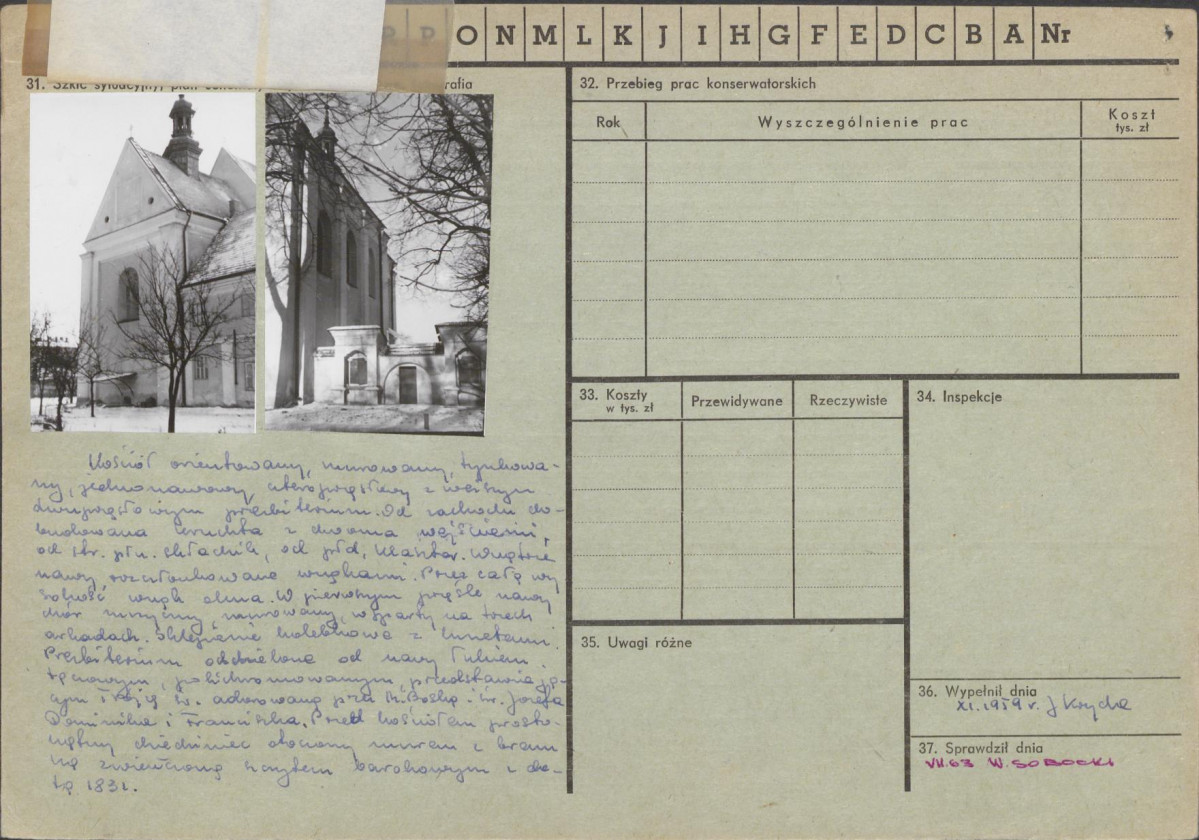 P O N M L K J I H G F E D C B A Nr
31. Szkic sytuacyjny, plan
32. Przebieg prac konserwatorskich
Rok
Wyszczególnienie prac
Koszt
tys. zł
33. Koszty
w tys. zł
Przewidywane
Rzeczywiste
34. Inspekcje
35. Uwagi różne
36. Wypełnił dnia
XI. 1959 r. J Kzyda
37. Sprawdził dnia
VII.63 W. SOBOCKI
Kościół orientowany, murowany, tynkowa-
ny, jednonawowy, czteroprzęsłowy z węższym
dwuprzęsłowym prezbiterium. Od zachodu do-
budowana kruchta z dwoma wejściami,
od str. płn. składzik, od płd. klasztor. Wnętrze
nawy rozczłonkowane wnękami. Przez całą wy
sokość wnęk okna. W pierwszym przęśle nawy
chór muzyczny, murowany, wsparty na trzech
arkadach. Sklepienie kolebkowe z lunetami.
Prezbiterium oddzielone od nawy łukiem
tęczowym, polichromowanym, przedstawiają-
cym Trójcę św. adorowaną prze M. Boską i św. Józefa
Dominika i Franciszka. Przed kościołem prosto-
kątny dziedziniec otoczony murem z bram
ką zwieńczoną szczytem barokowym z da-
tą 1831.